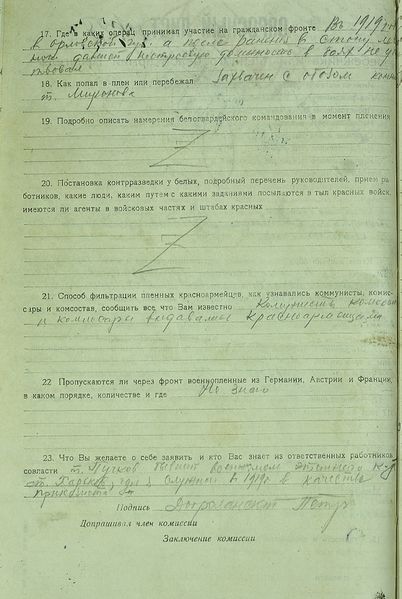 17. Где в каких операц принимал участие на гражданском фронте Въ 1919 г.
в орловской губ. а после ранения в стопу
18. Как попал в плен или перебежал Захвачен с обозом
т. Миронова
19. Подробно описать намерения белогвардейского командования в момент пленения
20. Постановка контрразведки у белых, подробный перечень руководителей, прием ра
ботников, какие люди, каким путем с какими заданиями посылаются в тыл красных войск,
имеются ли агенты в войсковых частях и штабах красных
21. Способ фильтрации пленных красноармейцев, как узнавались коммунисты, комис-
сары и комсостав, сообщить все, что Вам известно Комунисты
и комисары выдавались красноармейцами
22 Пропускаются ли через фронт военнопленные из Германии, Австрии и Франции,
в каком порядке, количестве и где Не знаю
23. Что Вы желаете о себе заявить и кто Вас знает из ответственных работников
совласти т. Пучков бывший военкомом
гор. Харьков, где я служил в 1919 г. в качестве
Подпись Петр
Допрашивал член комиссии
Заключение комиссии